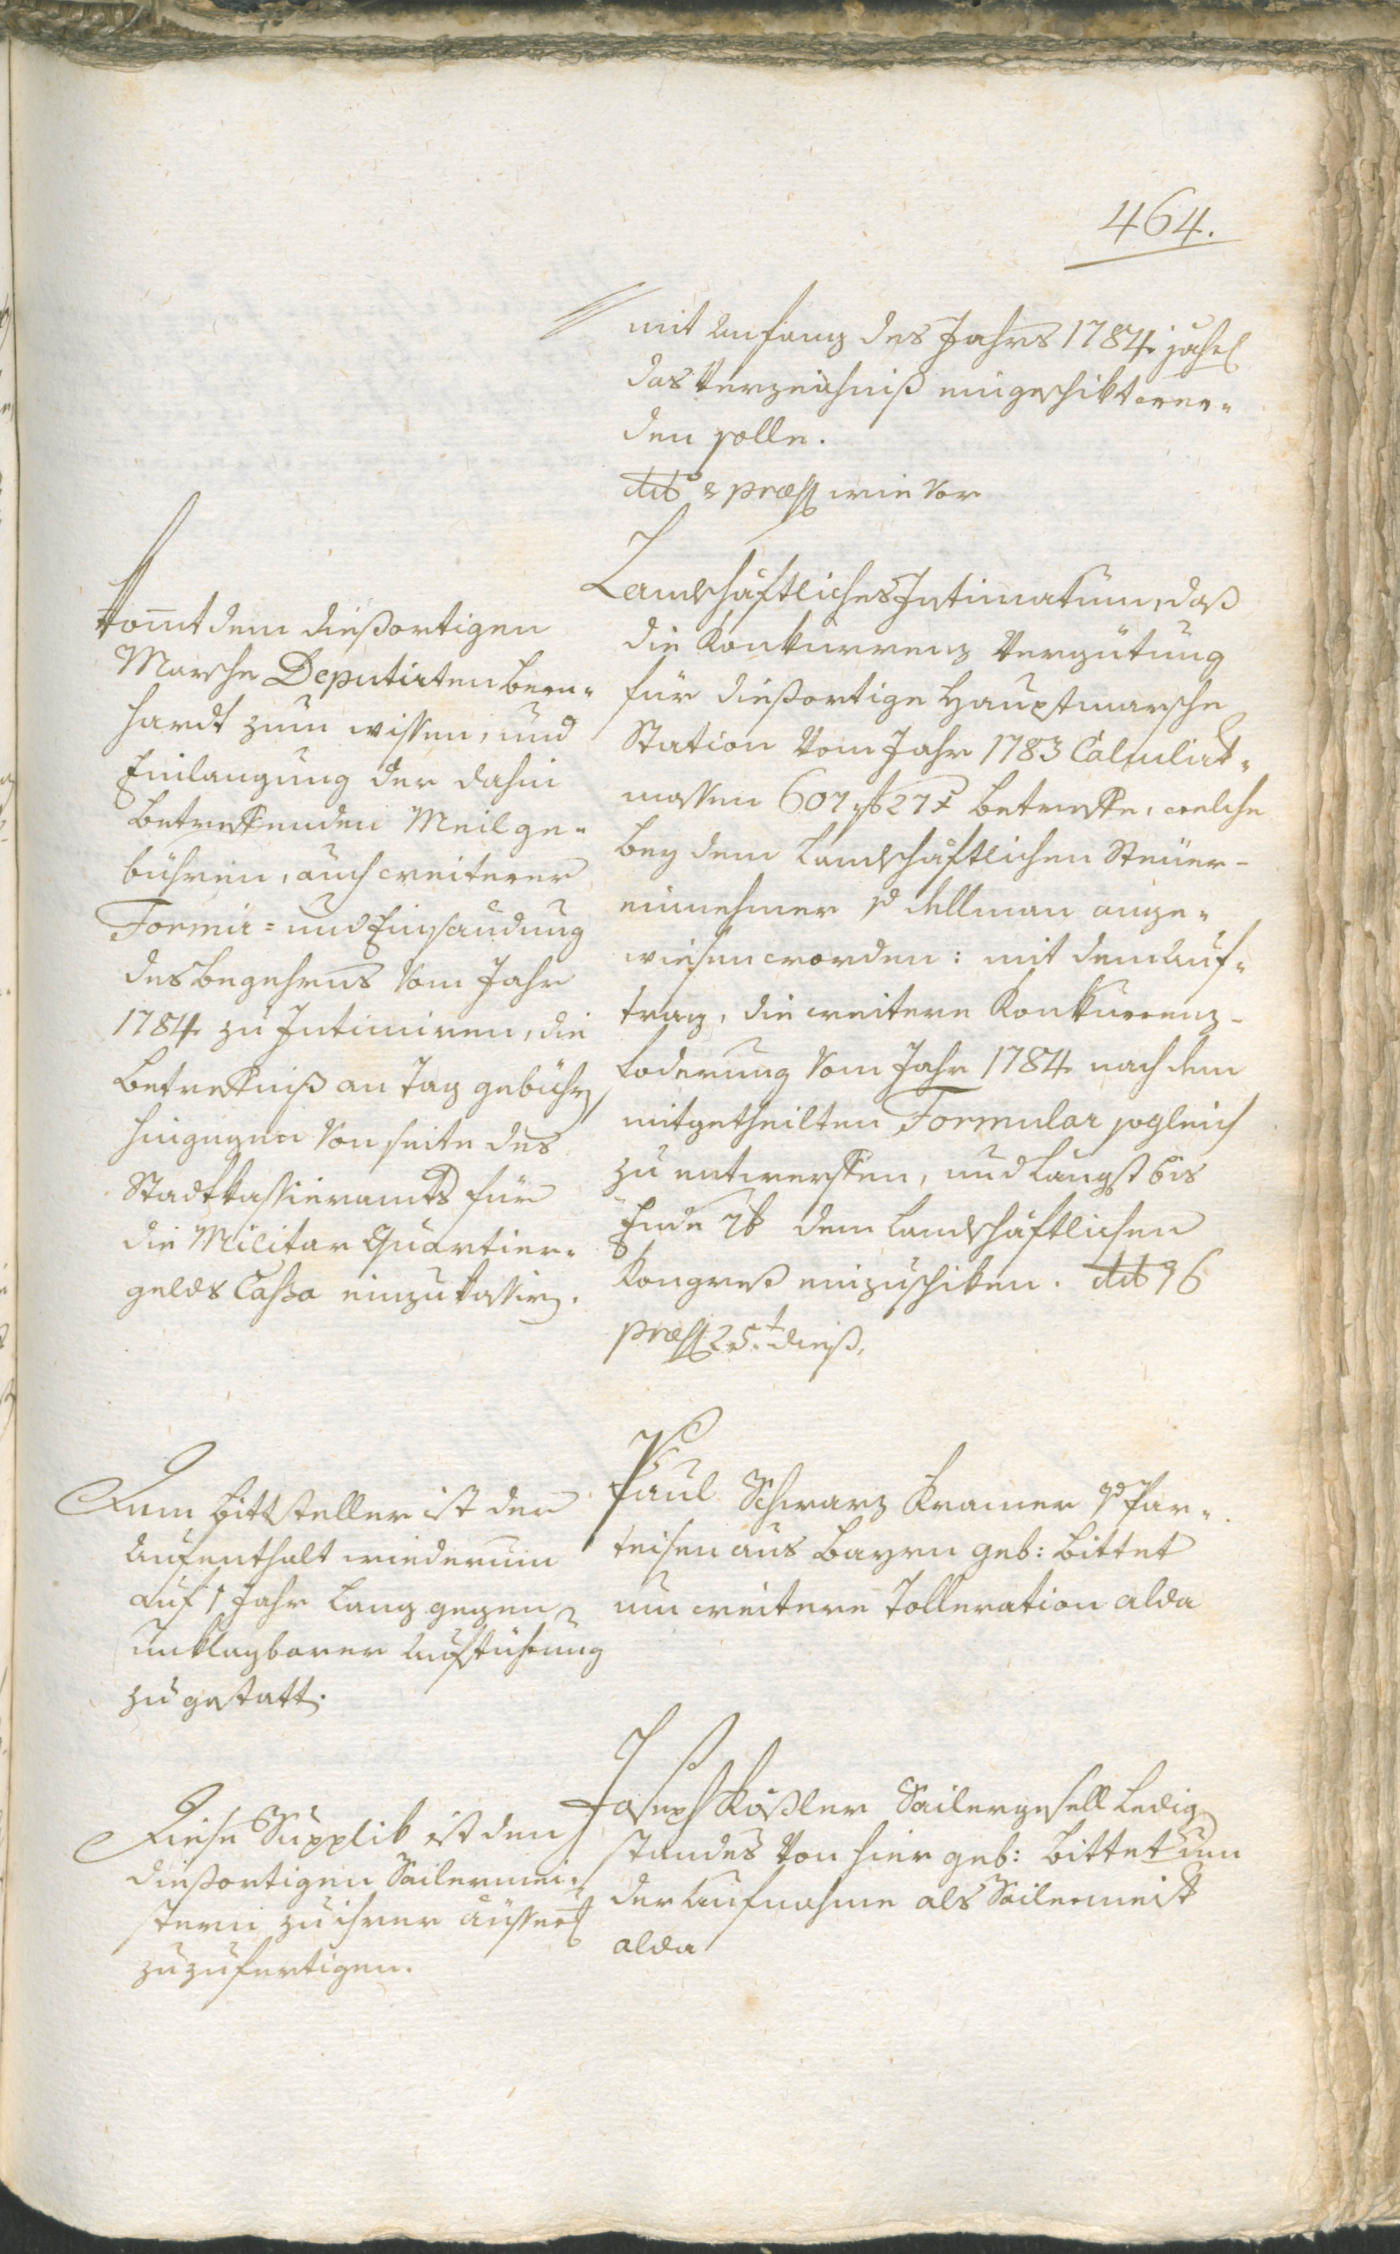 464.
mit Anfang des Jahrs 1784. jährl
das Verzeichniß eingeschikt wer-
den solle.
wie vor
Landschäftliches Intimatum, daß
die Konkurrenz Vergütung
für dießortige Hauptmarsche
Station vom Jahr 1783 Calculat-
massen 607 f 27 x betreffe, welche
bey dem Landschäftlichen Steuer-
einnehmer ange-
wiesen worden: mit dem Auf-
trag, die weitere Konkurrenz-
foderung vom Jahr 1784 nach dem
mitgetheilten Formular sogleich
zu entwerffen, und längst bis
Ende dem Landschäftlichen
Kongreß einzuschiken.
25.t dieß.
Komt dem dießortigen
Marsche Deputirten Bern-
hardt zum wissen, und
Einlangung der dahin
betreffenden Meilge-
bühren, auch weiterer
Formir- und Einsendung
des Begehrens vom Jahr
1784 zu Intimiren, die
Betreffniß an Tag gebühr
hingegen von seite des
Stadtkassieramts für
die Militar Quartier-
gelds Cassa einzukassirn.
Paul Schwarz Kramer
aus Bayrn geb: bittet
um weitere Tolleration alda
Dem Bittsteller ist der
Aufenthalt wiederum
auf 1 Jahr lang gegen
unklagbarer Aufführung
zu gestatt.
Joseph Roßler Sailergesell ledig
standes von hier geb: bittet um
der Aufnahme als Sailermeist
alda
Diese Supplik ist den
dießortigen Sailermei-
stern zu ihrer äusser
zuzufertigen.